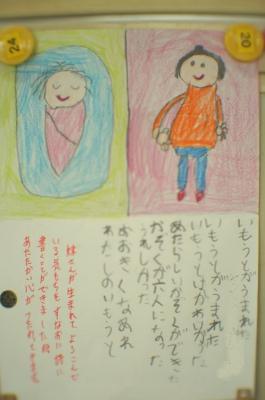 いもうとがうまれた
いもうとがうまれた
いもうとはかわいかった
あたらしいかぞくができた
かぞくが六人になった
うれしかった
おおきくなあれ
わたしのいもうと
妹さんが生まれてよろこんで
いる気もちをすなおに詩に
書くことができましたね
あたたかい心がつたわってきます
24
20